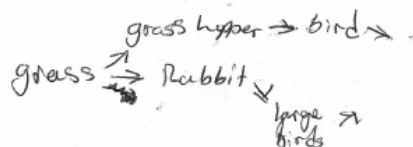 grasshypper → bird ↘
grass → Rabbit
large
birds